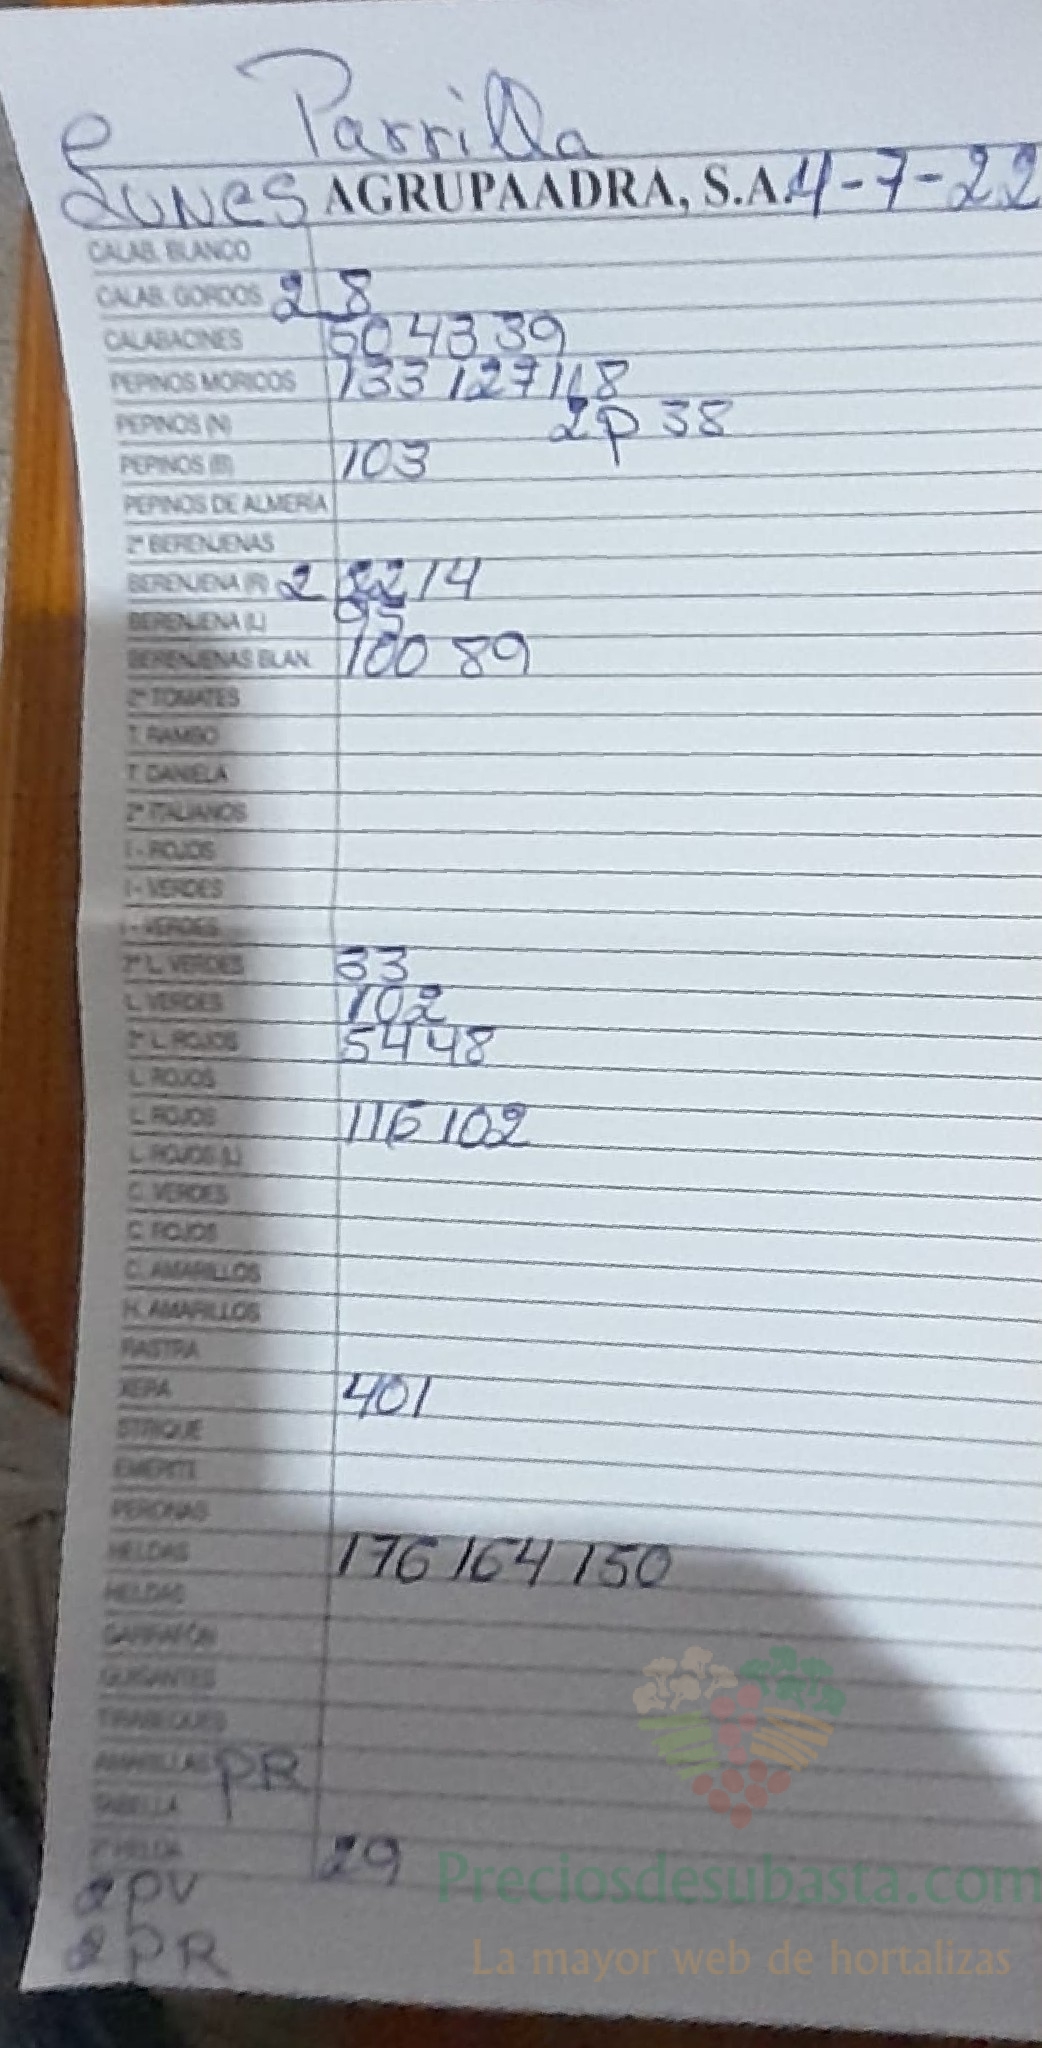 Parrilla
e
Lunes AGRUPAADRA, S.A. 4-7-22
CALAB. BLANCO
CALAB. GORDOS 2 8
CALABACINES 50 43 39
PEPINOS MORICOS 133 127 118
PEPINOS (N) 2P 38
PEPINOS (B) 103
PEPINOS DE ALMERÍA
2ª BERENJENAS
BERENJENA (R) 2 22 14
BERENJENA (L) 95
BERENJENAS BLAN. 100 89
2ª TOMATES
T. RAMBO
T. DANIELA
2ª ITALIANOS
I - ROJOS
I - VERDES
I - VERDES
2ª L. VERDES 33
L. VERDES 102
2ª L. ROJOS 54 48
L. ROJOS
L. ROJOS 116 102
L. ROJOS (L)
C. VERDES
C. ROJOS
C. AMARILLOS
H. AMARILLOS
RASTRA
XERA 401
STRIQUE
EMERITE
PERONAS
HELDAS 176 164 150
HELDAS
GARRAFÓN
GUISANTES
TIRABEQUES
AMARILLAS PR
TABELLA
2ª HELDA 29
2 PV
2 PR
Preciosdesubasta.com
La mayor web de hortalizas